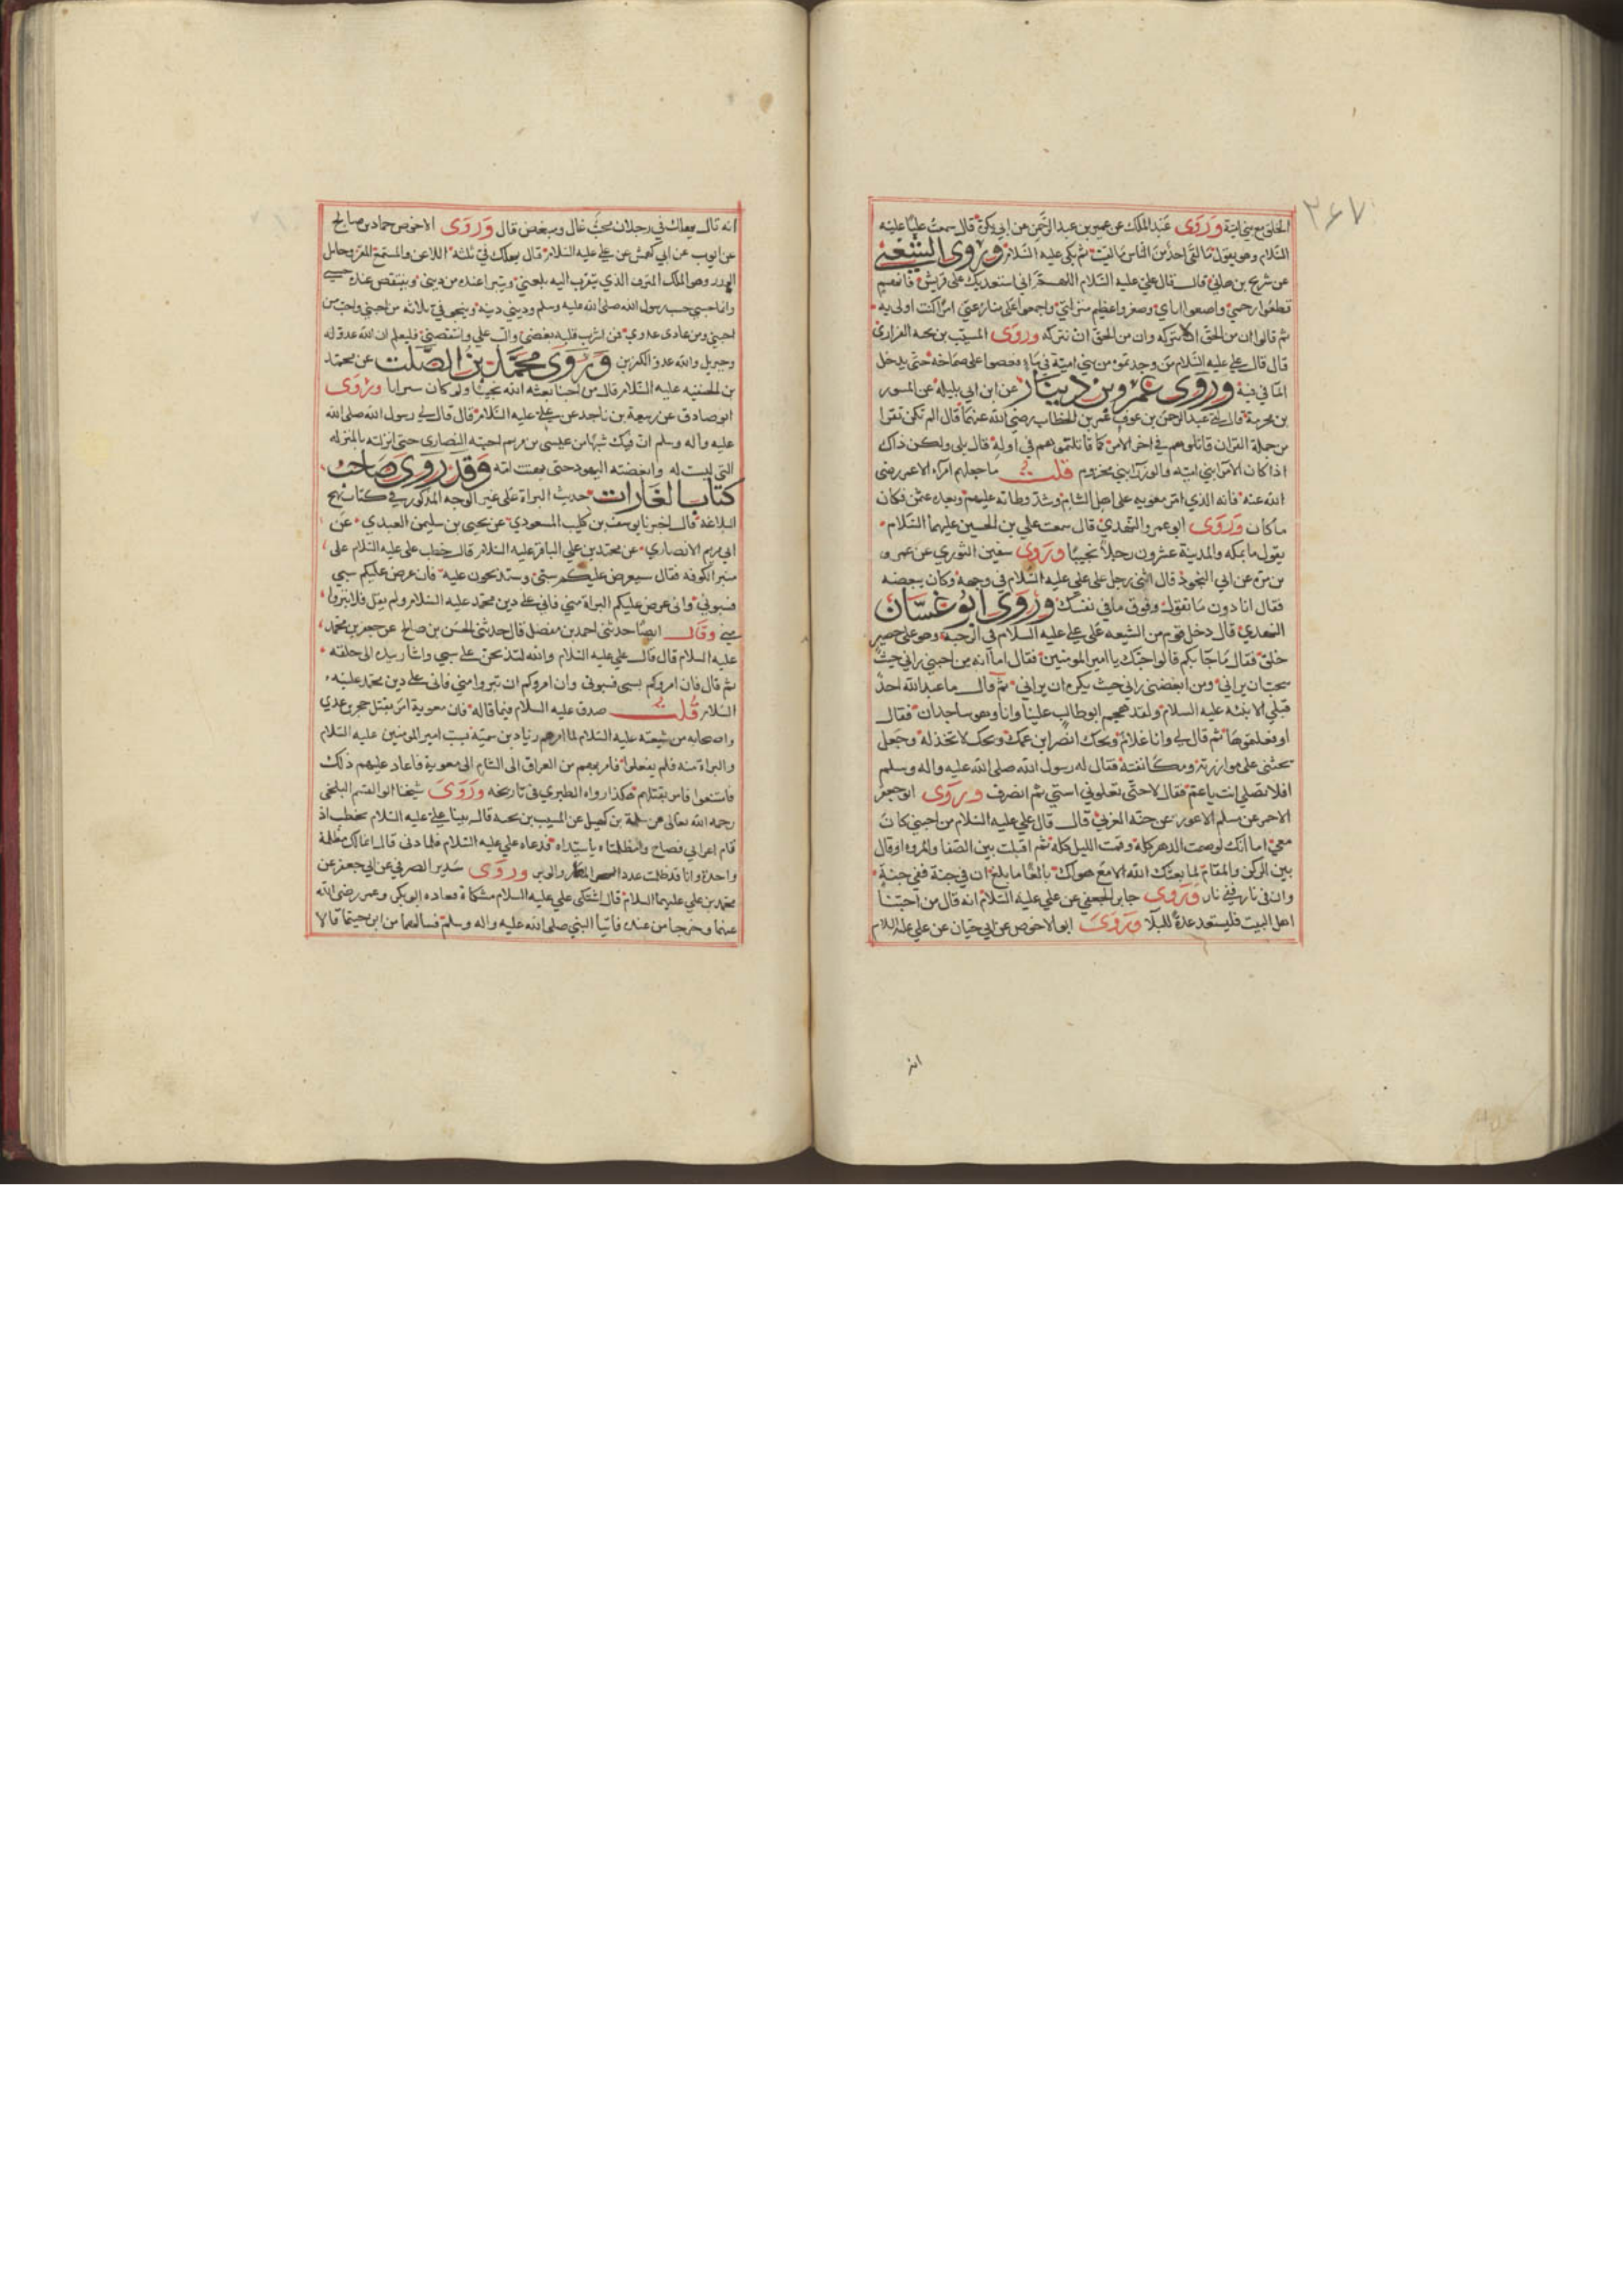 ٣٤٧
الخلق مع بني امية وَرَوَى عَبد الملك عن عمير بن عبد الرحمن عن ابي بكرة قال سمعت عليًا عليه
السّلام وهو يقول مَا لقى احدٌ من الناس مَا لقيت ثم بكى عليه السّلام وروى الشعبي
عن شريح بن هاني قال قال علي عليه السّلام اللهم اني استعديك على قريش فانهم
قطعوا رحمي واصغوا اناي وصغروا عظيم منزلتي واجمعوا على منازعتي امرًا كنت اولى به
ثم قالوا ان من الحق ان نتركه وان من الحق ان نتركه وروَى المسيّب بن نجبه الفزاري
قال قال علي عليه السّلام من وجدتموه من بني امية في ماء فغصوا على صماخه حتى يدخل
الماء في فيه وروى عَمرو بن دينار عن ابن ابي مليكه عن المسور
بن مخرمة قال لقي عبد الرحمن بن عوف عمر بن الخطاب رضي الله عنهما قال الم نكن نقرا
من جملة القران قاتلوهم في اخر الامر كما قاتلتموهم في اوله قال بلى ولكن ذاك
اذا كان الامرا بني اميه والوزرا بني مخزوم قلت ما جعلهم امراء الا عمر رضي
الله عنه فانه الذي امر معويه على اهل الشام وشد وطاته عليهم وبعده عثمن فكان
ما كان وَرَوَى ابو عمر والنهدي قال سمعت علي بن الحسين عليهما السّلام
يقول ما بمكه والمدينة عشرون رجلًا نحبنا وروى سفين الثوري عن عمرو
بن مره عن ابي البختري قال اثنى رجل على علي عليه السّلام في وجهه وكان يبغضه
فقال انا دون مَا تقول وفوق ما في نفسك وروى ابو غسّان
النهدي قال دخل قوم من الشيعه على علي عليه السّلام في الرحبه وهو على حصير
خلق فقال ما جآ بكم قالوا حبّك يا امير المومنين فقال اما انه من احبني راني حيث
يحب ان يراني ومن ابغضني راني حيث يكره ان يراني ثم قال ما عبد الله احدٌ
قبلي الا نبيّه عليه السلام ولقد هجم ابو طالب علينا وانا وهو ساجدان فقال
اوفعلتموها ثم قال لي وانا غلام ويحك انصر ابن عمك ويحك لا تخذله وجعل
يحثني على موازرته ومكانفته فقال له رسول الله صلى الله عليه واله وسلم
افلا تصلي انت يا عم فقال لا حتى تعلوني استي ثم انصرف وروَى ابو جعفر
الاحمر عن مسلم الاعور عن حبّه العرني قال قال علي عليه السّلام من احبني كان
معي اما انك لو صمت الدهر كله وقمت الليل كله ثم اقبلت بين الصّفا والمروه او قال
بين الركن والمقام لما بعثك الله الا مع هواك بالغًا ما بلغ ان في جنة ففي جنةٍ
وان في نار ففي نار وَروى جابر الجعفي عن علي عليه السّلام انه قال من احبنا
اهل البيت فليستعد عدةً للبلآ وَرَوَى ابو الاحوص عن ابي حيّان عن علي عليه السلام
انه
انه قال يهلك في رجلان محبّ غال ومبغض قال وَرَوَى الاحوص حماد بن صالح
عن ايوب عن ابي كهمش عن علي عليه السّلام قال يهلك في ثلثه اللاعن والمستمع المقر وحامل
الوزر وهو الملك المترف الذي يتقرب اليه بلعني ويتبرا عنده من ديني وينتقص عنده حسبي
وانما حسبي حسب رسول الله صلى الله عليه وسلم وديني دينه وينجو في ثلاثه من احبني واحب من
احبني ومن عادى عدوي فمن اشرب قلبه بغضي والب علي وانتقصني فليعلم ان الله عدو له
وجبريل والله عدو الكافرين وَرَوَى محمّد بن الصّلت عن محمد
بن الحنفيه عليه السّلام قال من احبنا نفعه الله بحبنا ولو كان سيرابا وروَى
ابو صادق عن ربيعة بن ناجد عن علي عليه السّلام قال قال لي رسول الله صلى الله
عليه واله وسلم انّ فيك شبهًا من عيسى بن مريم احبته النصارى حتى انزلته بالمنزله
التي ليست له وابغضته اليهود حتى بهتت امه وَقَد رَوَى صَاحب
كتاب الغَارات حديث البراة على غير الوجه المذكور في كتاب نهج
البلاغة قال اخبرنا يوسف بن كليب المسعودي عن يحيى بن سليمن العبدي عن
ابي مريم الانصاري عن محمد بن علي الباقر عليه السّلام قال خطب علي عليه السّلام على
منبر الكوفه فقال سيعرض عليكم سبّي وستذبحون عليه فان عرض عليكم سبي
فسبوني وان عرض عليكم البراة مني فاني على دين محمّد عليه السّلام ولم يقل فلا تبروا
مني وَقال ايضًا حدثني احمد بن مفضل قال حدثني الحسن بن صالح عن جعفر بن محمّد
عليه السلام قال قال علي عليه السّلام والله لتذبحن على سبي واشار بيده الى حلقه
ثم قال فان امروكم بسبي فسبوني وان امروكم ان تبروا مني فاني على دين محمّد عليه
السّلام قُلت صدق عليه السلام فيما قاله فان معوية امر بقتل حجر بن عدي
واصحابه من شيعته عليه السّلام لما امرهم زياد بن سميّه بسب امير المومنين عليه السّلام
والبراة منه فلم يفعلوا فامر بهم من العراق الى الشام الى معوية فاعاد عليهم ذلك
فامتنعوا فامر بقتلهم هكذا رواه الطبري في تاريخه وَرَوَى شيخنا ابو القسم البلخي
رحمه الله تعالى عن سلمة بن كهيل عن المسيب بن نجبه قال بينا علي عليه السّلام يخطب اذ
قام اعرابي فصاح وامظلمتاه يا سيّداه فدعاه علي عليه السّلام فلما دنى قال انما لك مظلمة
واحدة وانا قد ظلمت عدد المدر والوبر وروَى سَدير الصرفي عن ابي جعفر عن
محمّد بن علي عليهما السلام قال اشتكى علي عليه السلام مشكاة فعاده ابو بكر وعمر رضي الله
عنهما وخرجا من عنده فاتيا النبي صلى الله عليه واله وسلم فسالهما من اين جيتما قالا